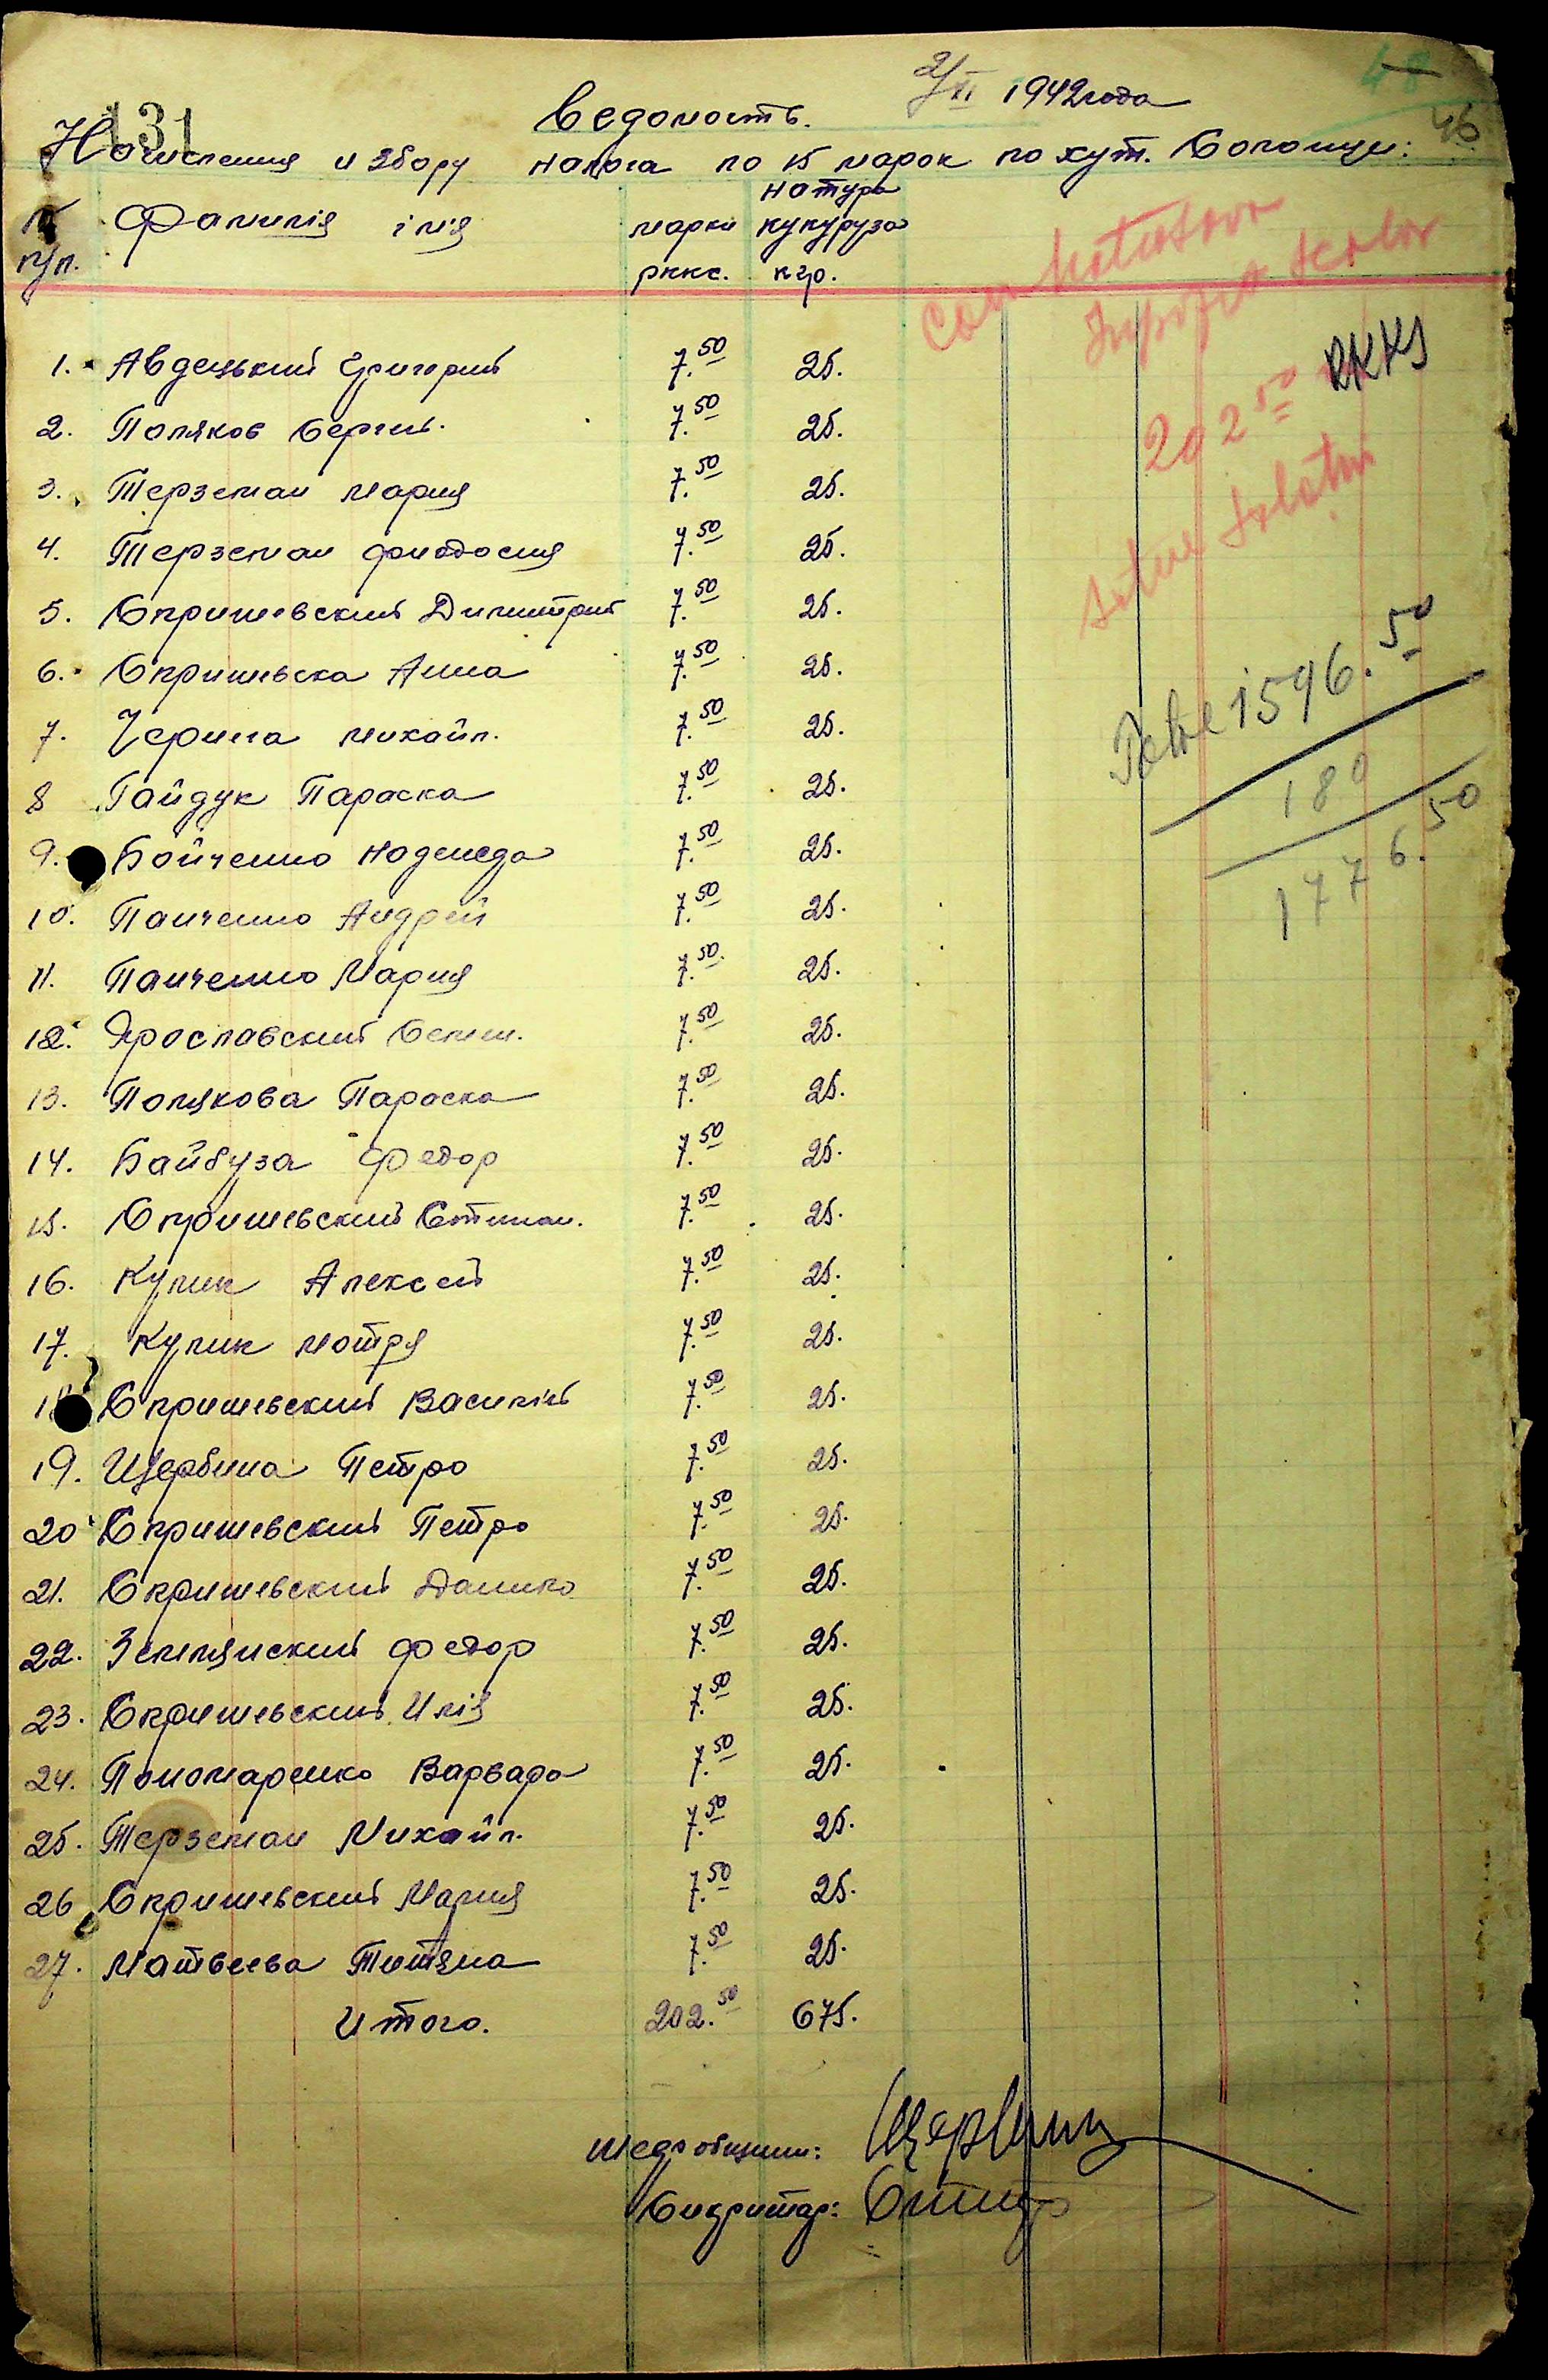 48
46
131
2/XI 1942 года
Ведомость.
Начисления и збору налога по 15 марок по хут.
№ п/п. Фамилія імя марки рккс. натура кукуруза кгр.
1. Авдецький Григорий 7.50 25.
2. Поляков Сергий. 7.50 25.
3. Терземан Мария 7.50 25.
4. Терземан Фиодосия 7.50 25.
5. Скришевский Димитрий 7.50 25.
6. Скришевска Анна 7.50 25.
7. Черина Михайл. 7.50 25.
8 Гайдук Параска 7.50 25.
9. Бойченко Надежда 7.50 25.
10. Панченко Андрей 7.50 25.
11. Панченко Мария 7.50 25.
12. Ярославский Семен. 7.50 25.
13. Полякова Параска 7.50 25.
14. Байбуза Федор 7.50 25.
15. Скришевский Степан. 7.50 25.
16. Кулик Алексей 7.50 25.
17. Кулик Мотря 7.50 25.
18 Скришевский Василий 7.50 25.
19. Щербина Петро 7.50 25.
20 Скришевский Петро 7.50 25.
21. Скришевский Данило 7.50 25.
22. Землянский Федор 7.50 25.
23. Скришевский Илія 7.50 25.
24. Пономаренко Варвара 7.50 25.
25. Терземан Михайл. 7.50 25.
26 Скришевский Мария 7.50 25.
27. Матвеева Титяна 7.50 25.
Итого. 202.50 675.
RKKS
202 50
1596.50
180
1776.50
Шеф общини: Щербина
Сикритар: